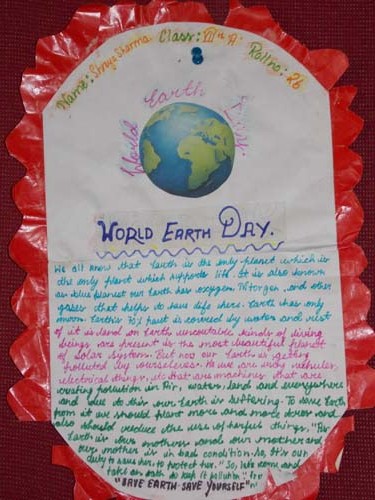 Name: Shreya Sharma Class: VIIth A Roll no: 26
World Earth Day
WORLD EARTH DAY.
We all know that Earth is the only planet which is
the only planet which supports life. It is also known
as blue planet our Earth has oxygen, Nitrogen, and other
gases that helps to have life here. Earth has only
moon Earth's 70% part is covered by water and rest
of it is land on Earth, uncountable kinds of living
beings are present is the most beautiful planet
of solar system. But now our Earth is getting
polluted by ourselves. As we are using vehicles,
electrical things, etc that are machines that are
creating pollution on Air, water, land and everywhere
and due to this our Earth is suffering. To save Earth
from it we should plant more and more trees and
also should reduce the use of harful things. "
Earth is our mother and our mother and
our mother is in bad condition. So, It's our
duty to save her to protect her." So, let's come and
take an oath to keep it pollution "free
"SAVE EARTH SAVE YOURSELF"